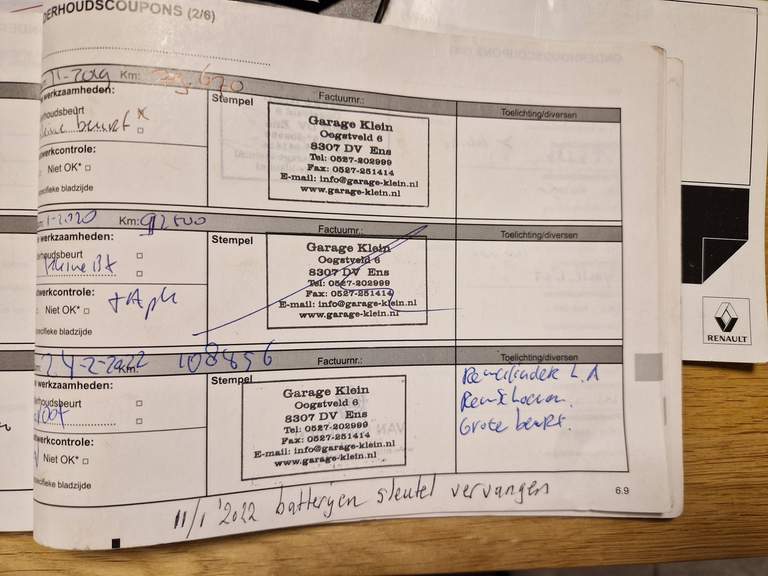 DERHOUDSCOUPONS (2/6)
11-2019 Km:
Factuurnr.:
Toelichting/diversen
werkzaamheden:
Stempel
rhoudsbeurt x
beurt
werkcontrole:
Niet OK*
pecifieke bladzijde
Garage Klein
Oogstveld 6
8307 DV Ens
Tel: 0527-202999
Fax: 0527-251414
E-mail: info@garage-klein.nl
www.garage-klein.nl
1-2020 Km: 92500
Factuurnr.:
Toelichting/diversen
e werkzaamheden:
Stempel
rhoudsbeurt
Kleine Bt
werkcontrole:
Niet OK*
+ Apk
specifieke bladzijde
Garage Klein
Oogstveld 6
8307 DV Ens
Tel: 0527-202999
Fax: 0527-251414
E-mail: info@garage-klein.nl
www.garage-klein.nl
24-2-2022 Km: 108456
Factuurnr.:
Toelichting/diversen
werkzaamheden:
Stempel
rhoudsbeurt
werkcontrole:
Niet OK*
pecifieke bladzijde
Garage Klein
Oogstveld 6
8307 DV Ens
Tel: 0527-202999
Fax: 0527-251414
E-mail: info@garage-klein.nl
www.garage-klein.nl
Remcilinder L.A
Remschoenen
Grote beurt.
11/1 '2022 batterijen sleutel vervangen
6.9
RENAULT